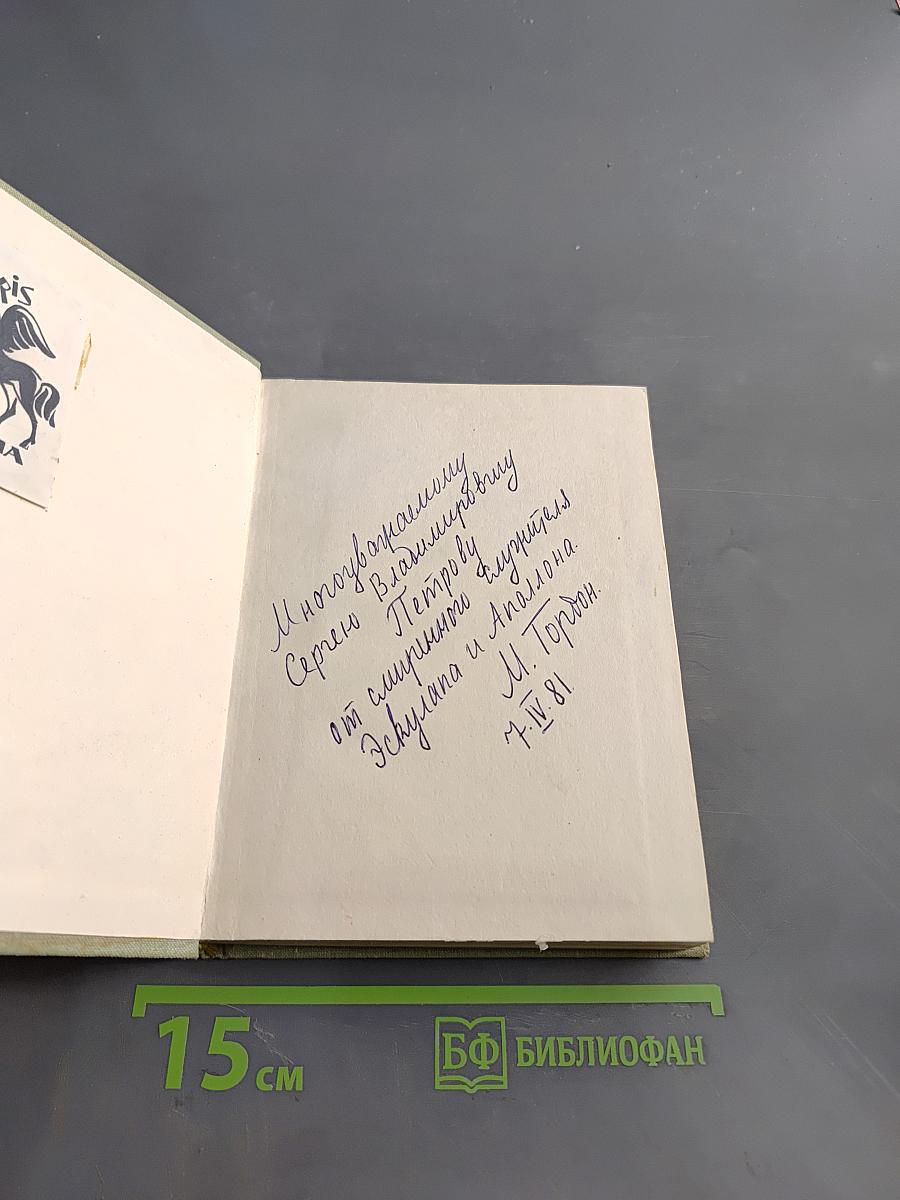 pis
ЛА
Многоуважаемому
Сергею Владимировичу
Петрову
от смиренного служителя
Эскулапа и Аполлона.
М. Гордон.
7.IV.81.
15 см
БФ БИБЛИОФАН